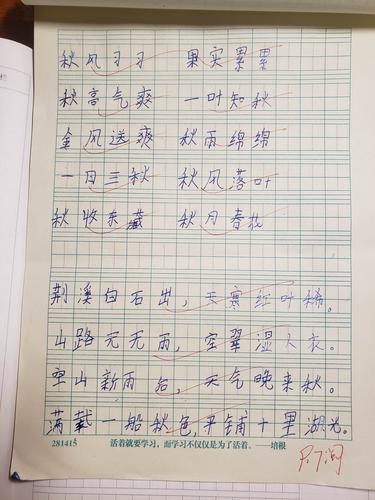 秋风习习 果实累累
秋高气爽 一叶知秋
金风送爽 秋雨绵绵
一日三秋 秋风落叶
秋收冬藏 秋月春花
荆溪白石出，天寒红叶稀。
山路元无雨，空翠湿人衣。
空山新雨后，天气晚来秋。
满载一船秋色，平铺十里湖光。
281415 活着就要学习，而学习不仅仅是为了活着。——培根